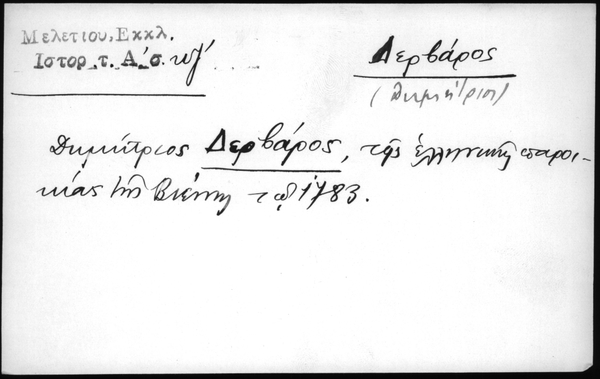 Μελετίου, Εκκλ.
Ιστορ. τ. Α΄ σ. κζ΄
Δερβάρος
(Δημήτριος)
Δημήτριος Δερβάρος, τῆς ἑλληνικῆς παροι-
κίας τῆς Βιέννης τῷ 1783.